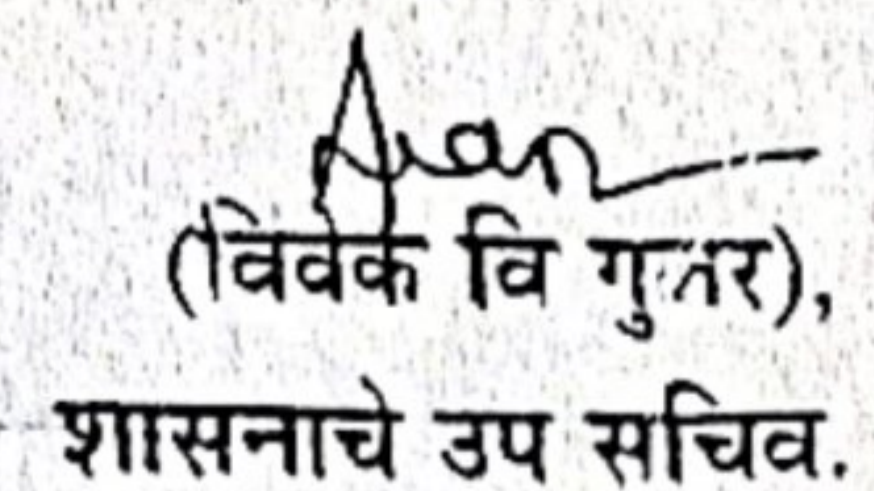 (विवेक वि
शासनाचे उप सचिव.